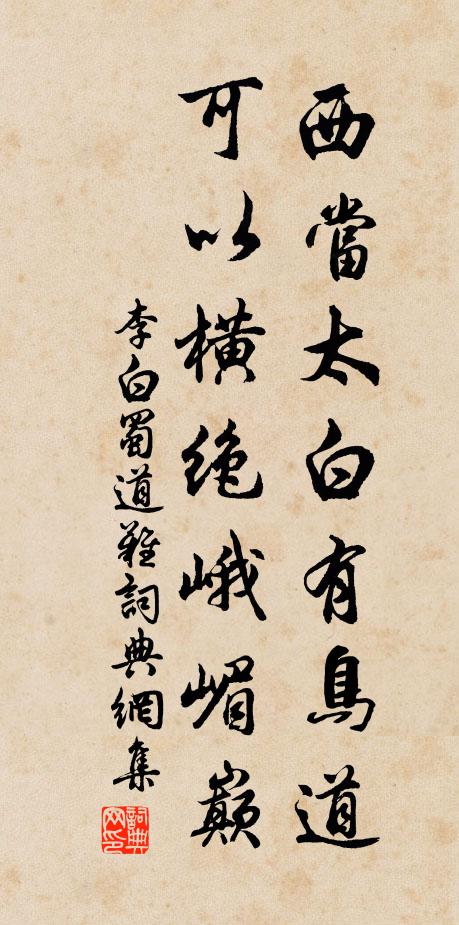 西當太白有鳥道
可以橫絶峨嵋巔
李白蜀道難詞典網集
詞典网印